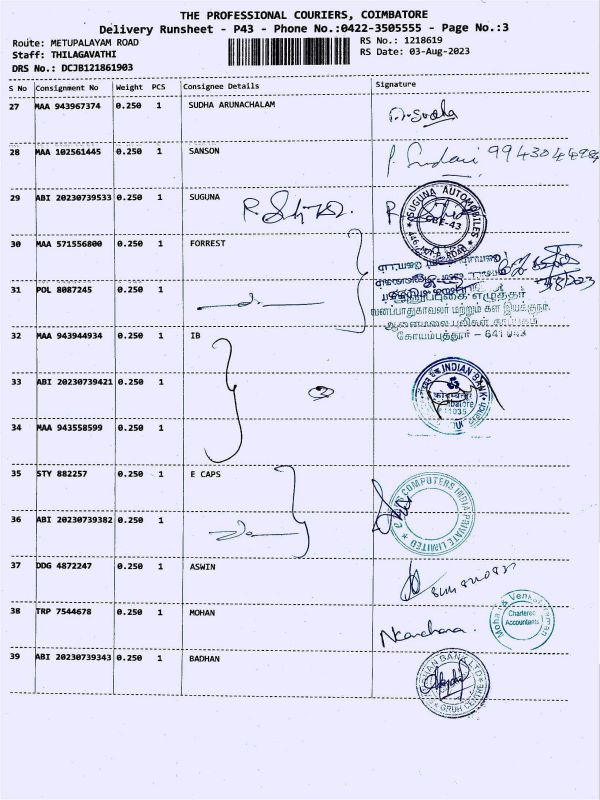 THE PROFESSIONAL COURIERS, COIMBATORE
Delivery Runsheet - P43 - Phone No.:0422-3505555 - Page No.:3
Route: METUPALAYAM ROAD
RS No.: 1218619
Staff: THILAGAVATHI
RS Date: 03-Aug-2023
DRS No.: DCJB121861903
S No Consignment No Weight PCS Consignee Details Signature
27 MAA 943967374 0.250 1 SUDHA ARUNACHALAM
28 MAA 102561445 0.250 1 SANSON
29 ABI 20230739533 0.250 1 SUGUNA
SUGUNA AUTOMOBILES
CBE-43
30 MAA 571556800 0.250 1 FORREST
31 POL 8087245 0.250 1
வனப்பாதுகாவலர் மற்றும் கள இயக்குநர்
ஆனைமலை புலிகள் காப்பகம்
கோயம்புத்தூர் - 641 043
32 MAA 943944934 0.250 1 IB
33 ABI 20230739421 0.250 1
INDIAN BANK
34 MAA 943558599 0.250 1
35 STY 882257 0.250 1 E CAPS
COMPUTERS INDIA PRIVATE LIMITED
36 ABI 20230739382 0.250 1
37 DDG 4872247 0.250 1 ASWIN
38 TRP 7544678 0.250 1 MOHAN
Chartered
Accountants
39 ABI 20230739343 0.250 1 BADHAN
BANK LTD
GRUH CENTRE